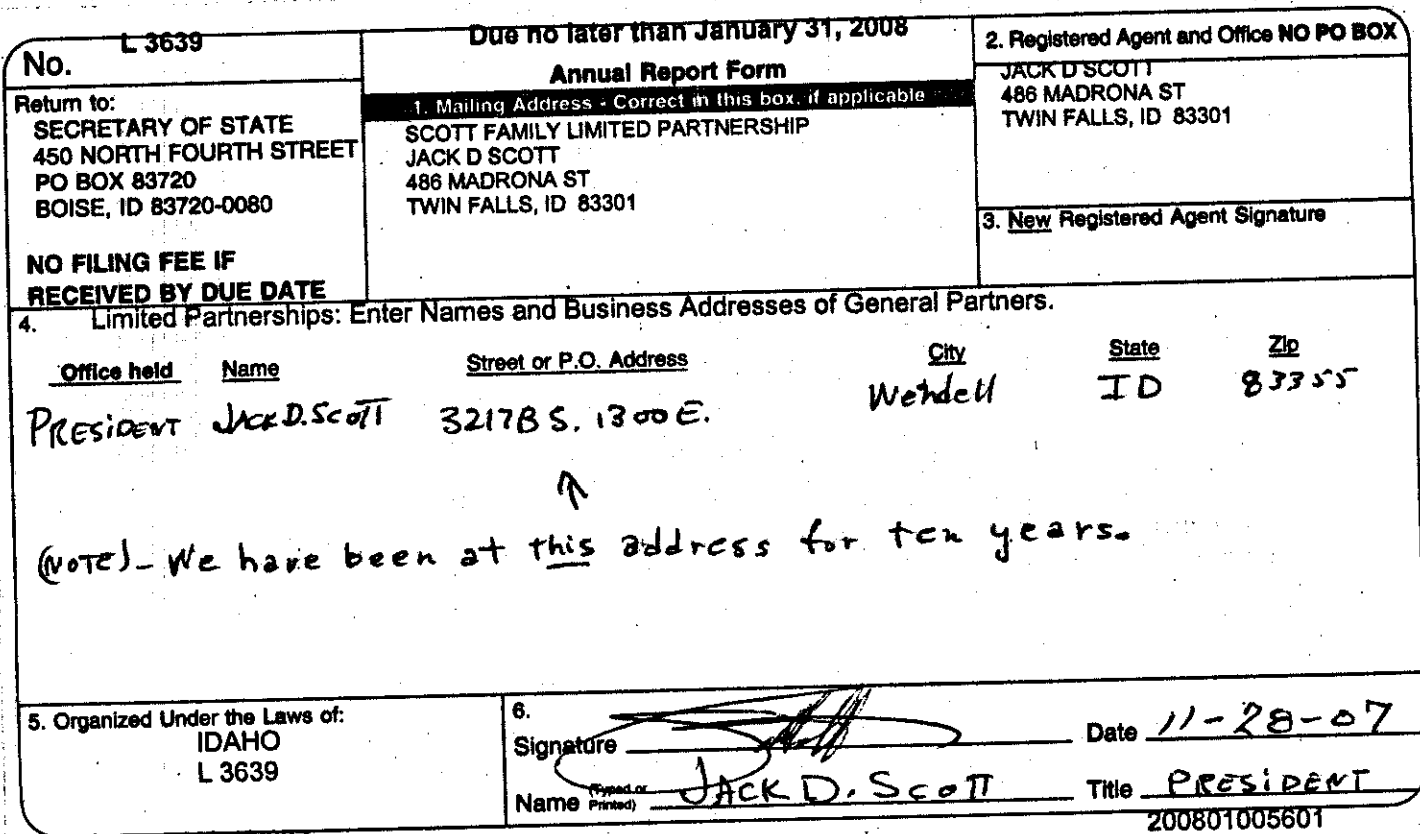 No. L 3639
Return to:
SECRETARY OF STATE
450 NORTH FOURTH STREET
PO BOX 83720
BOISE, ID 83720-0080
NO FILING FEE IF
RECEIVED BY DUE DATE
Due no later than January 31, 2008
Annual Report Form
1. Mailing Address - Correct in this box, if applicable
SCOTT FAMILY LIMITED PARTNERSHIP
JACK D SCOTT
486 MADRONA ST
TWIN FALLS, ID 83301
2. Registered Agent and Office NO PO BOX
JACK D SCOTT
486 MADRONA ST
TWIN FALLS, ID 83301
3. New Registered Agent Signature
4. Limited Partnerships: Enter Names and Business Addresses of General Partners.
Office held Name Street or P.O. Address City State Zip
PRESIDENT JACK D. SCOTT 3217B S. 1300 E. Wendell ID 83355
(NOTE) - We have been at this address for ten years.
5. Organized Under the Laws of:
IDAHO
L 3639
6.
Signature Date 11-28-07
Name (Typed or Printed) JACK D. SCOTT Title PRESIDENT
200801005601